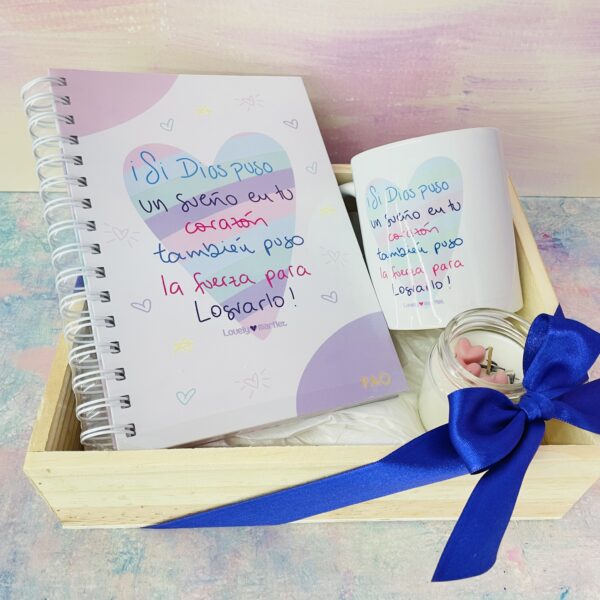 ¡Si Dios puso
un sueño en tu
corazón
también puso
la fuerza para
Lograrlo!
Lovely Martie
PAO
¡Si Dios puso
un sueño en tu
corazón
también puso
la fuerza para
Lograrlo!